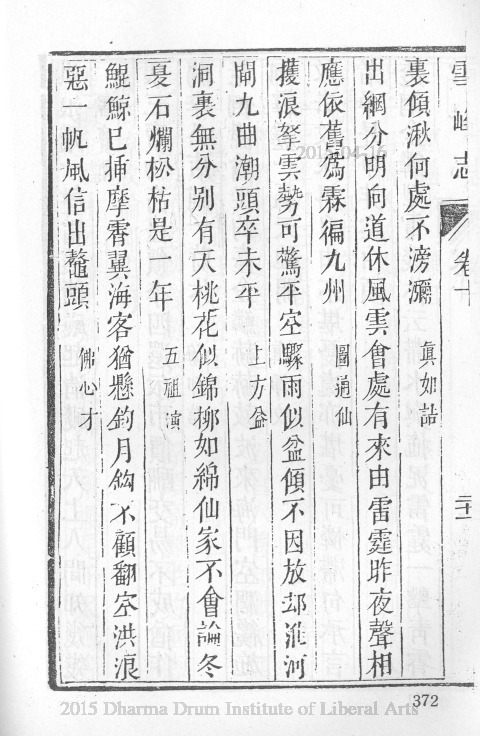 雪峰志
卷十
二十一
裏傾湫何處不滂瀰 真如喆
出網分明向道休風雲會處有來由雷霆昨夜聲相
應依舊爲霖徧九州 圓通仙
攫浪拏雲勢可驚平空驟雨似盆傾不因放却淮河
閘九曲潮頭卒未平 上方益
洞裏無分别有天桃花似錦桺如綿仙家不會論冬
夏石爛松枯是一年 五祖演
鯤鯨已揷摩霄翼海客猶懸釣月鈎不顧翻空洪浪
惡一帆風信出鼇頭 佛心才
2015-04-16
372
2015 Dharma Drum Institute of Liberal Arts